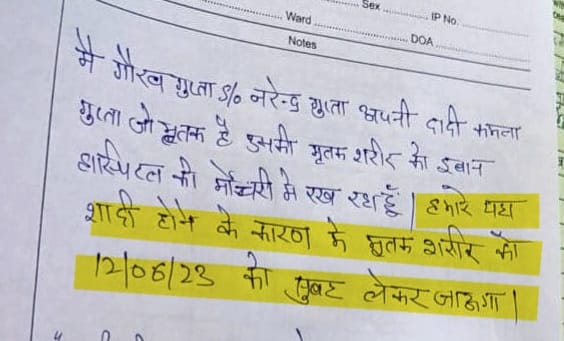 Sex
Ward IP No.
Notes DOA
मै गौरव गुप्ता S/o नरेन्द्र गुप्ता अपनी दादी कमला
गुप्ता जो मृतक है इसकी मृतक शरीर को इबान
हास्पिटल की मोर्चरी मे रख रहा हूँ | हमारे यहा
शादी होने के कारण के मृतक शरीर को
12/06/23 को सुबह लेकर जाऊगा |